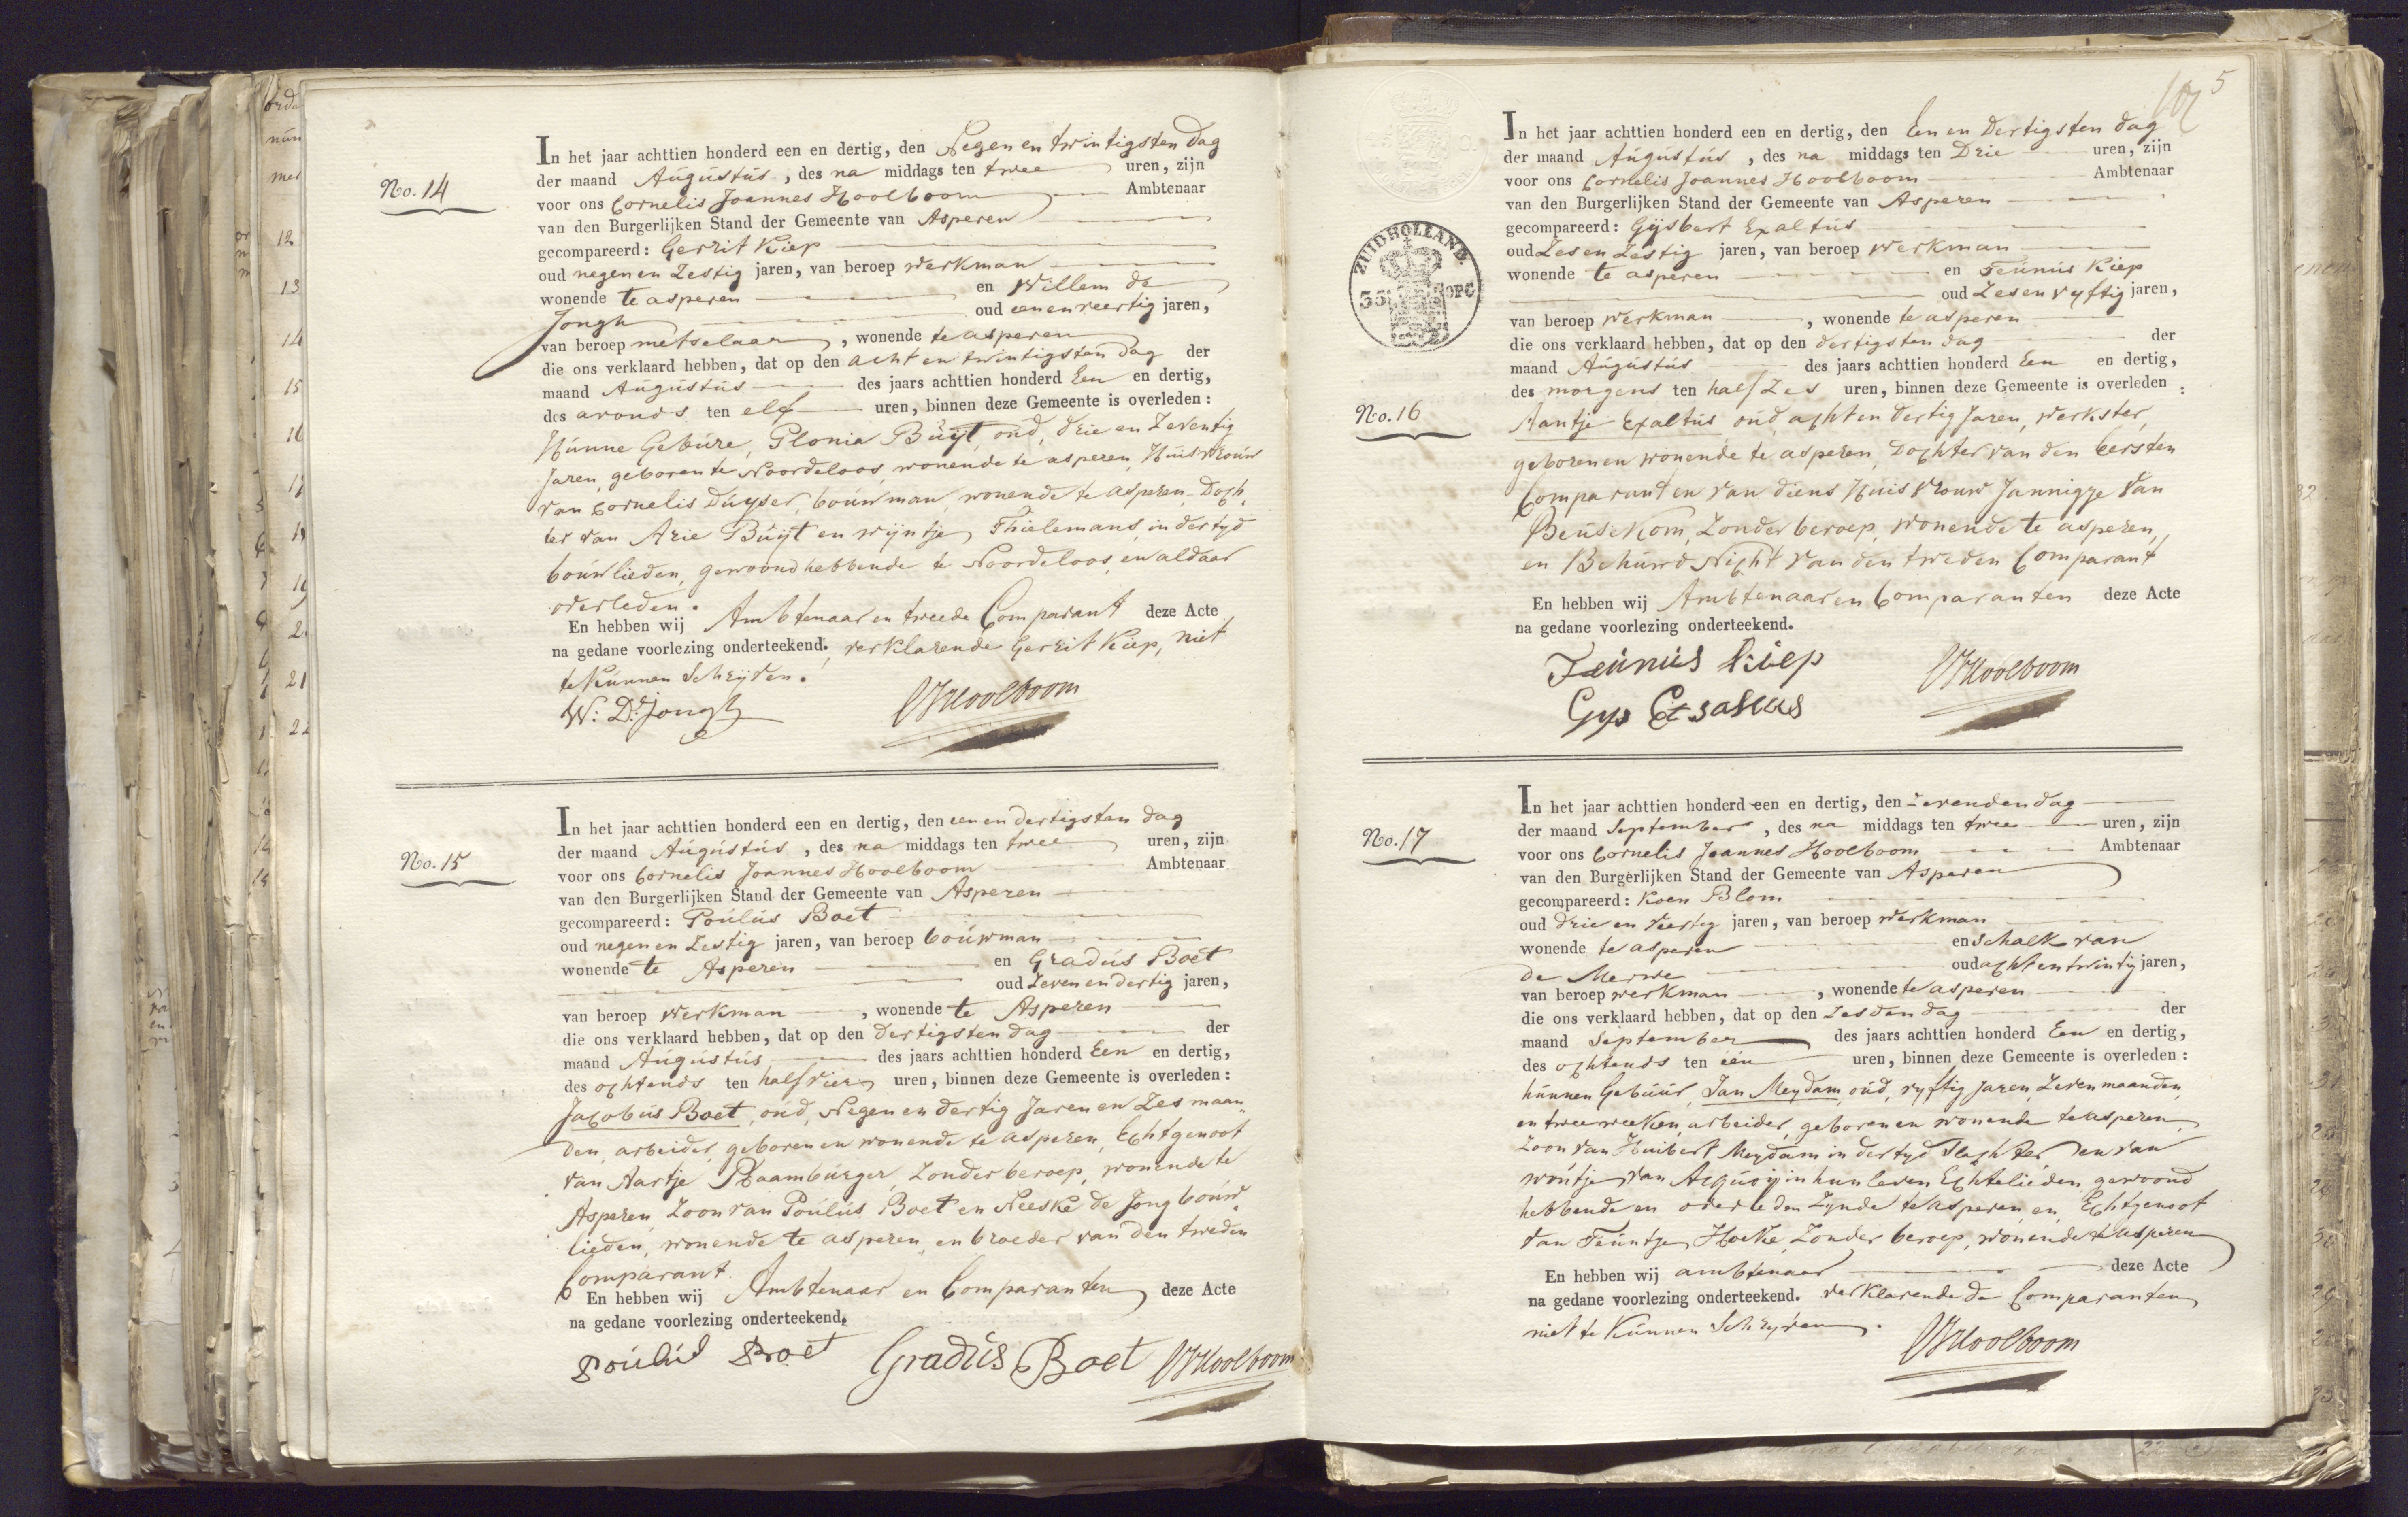 No. 14
In het jaar achttien honderd een en dertig, den Negen en twintigsten dag
der maand Augustus, des na middags ten twee uren, zijn
voor ons Cornelis Joannes Hoolboom Ambtenaar
van den Burgerlijken Stand der Gemeente van Asperen
gecompareerd: Gerrit Kiep
oud negen en Zestig jaren, van beroep werkman
wonende te asperen en Willem de
Jongh oud een en veertig jaren,
van beroep metselaar, wonende te asperen
die ons verklaard hebben, dat op den acht en twintigsten dag der
maand Augustus des jaars achttien honderd Een en dertig,
des avonds ten elf uren, binnen deze Gemeente is overleden:
Hunne Gebure, Plonia Buijt, oud, drie en Zeventig
Jaren, geboren te Noordeloos, wonende te asperen, Huisvrouw
van Cornelis Duyser, bouwman, wonende te asperen, Doch,
ter van Arie Buijt en wijntje Thielemans, in dertyd
bouwlieden, gewoond hebbende te Noordeloos, en aldaar
overleden.
En hebben wij Ambtenaar en tweede Comparant deze Acte
na gedane voorlezing onderteekend. verklarende Gerrit Kiep, niet
te Kunnen Schryven.
W: D: Jongh
CJHoolboom
No. 15
In het jaar achttien honderd een en dertig, den een en dertigsten dag
der maand Augustus, des na middags ten twee uren, zijn
voor ons Cornelis Joannes Hoolboom Ambtenaar
van den Burgerlijken Stand der Gemeente van Asperen
gecompareerd: Poulus Boet
oud negen en Zestig jaren, van beroep bouwman
wonende te Asperen en Gradus Boet
oud Zeven en dertig jaren,
van beroep werkman, wonende te Asperen
die ons verklaard hebben, dat op den dertigsten dag der
maand Augustus des jaars achttien honderd Een en dertig,
des ochtends ten half vier uren, binnen deze Gemeente is overleden:
Jacobus Boet, oud, Negen en dertig Jaren en Zes maan„
den, arbeider, geboren en wonende te asperen, Echtgenoot
van Aartje Raamburger, Zonder beroep, wonende te
Asperen, Zoon van Poulus Boet en Neeske de Jong bouw„
lieden, wonende te asperen, en broeder van den tweden
Comparant.
En hebben wij Ambtenaar en Comparanten deze Acte
na gedane voorlezing onderteekend.
Poulus Boet Gradus Boet CJHoolboom
5
ZUID HOLLAND.
No. 16
In het jaar achttien honderd een en dertig, den Een en Dertigsten dag
der maand Augustus, des na middags ten Drie uren, zijn
voor ons Cornelis Joannes Hoolboom Ambtenaar
van den Burgerlijken Stand der Gemeente van Asperen
gecompareerd: Gijsbert Exaltus
oud Zes en Zestig jaren, van beroep werkman
wonende te asperen en Teunus Kiep
oud Zes en vyftig jaren,
van beroep werkman, wonende te asperen
die ons verklaard hebben, dat op den dertigsten dag der
maand Augustus des jaars achttien honderd Een en dertig,
des morgens ten half Zes uren, binnen deze Gemeente is overleden:
Aantje Exaltus oud, acht en dertig Jaren, werkster,
geboren en wonende te asperen, Dochter van den Eersten
Comparant en van diens Huisvrouw Jannigje van
Beusekom, Zonder beroep, wonende te asperen,
en Behuwd Nicht van den tweden Comparant
En hebben wij Ambtenaar en Comparanten deze Acte
na gedane voorlezing onderteekend.
Teunus Kiep
CJHoolboom
Gys
No. 17
In het jaar achttien honderd een en dertig, den Zevenden dag
der maand September, des na middags ten twee uren, zijn
voor ons Cornelis Joannes Hoolboom Ambtenaar
van den Burgerlijken Stand der Gemeente van Asperen
gecompareerd: Koen Blom
oud drie en veertig jaren, van beroep werkman
wonende te asperen en Schalk van
de Merwe oud acht en twintig jaren,
van beroep werkman, wonende te asperen
die ons verklaard hebben, dat op den Zesden dag der
maand September des jaars achttien honderd Een en dertig,
des ochtends ten één uren, binnen deze Gemeente is overleden:
hunnen Gebuur, Jan Meydam, oud, vyftig Jaren, Zeven maanden,
en twee weeken, arbeider, geboren en wonende te asperen,
Zoon van Huibert Meydam in dertyd Slachter en van
woutje van Acquoij in hun leven Echtelieden, gewoond
hebbende en overleden Zynde te asperen, en Echtgenoot
van Teuntje Hoeke, Zonder beroep, wonende te asperen
En hebben wij ambtenaar deze Acte
na gedane voorlezing onderteekend. verklarende de Comparanten
niet te Kunnen Schryven.
CJHoolboom